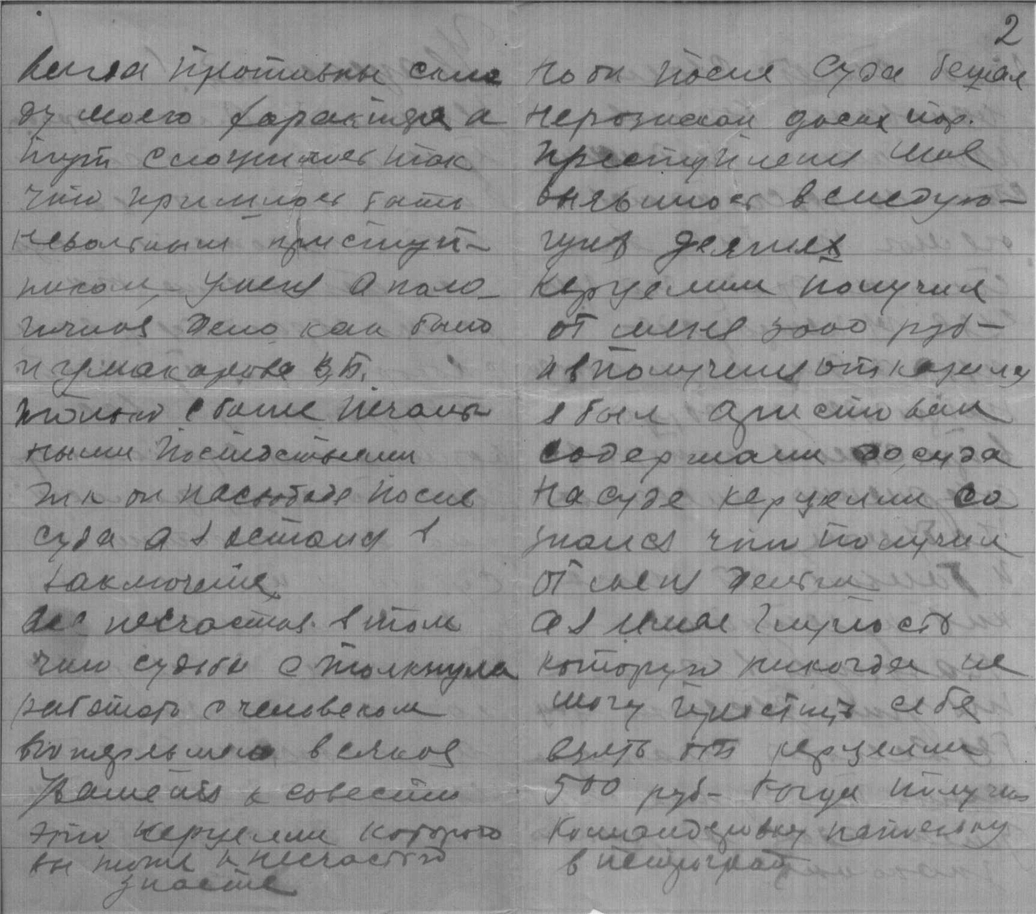 2
всегда противны скла
ду моего характера а
тут сложилось так
что пришлось быть
невольным приступ-
ником. У меня анало-
гичное дело как было
и у Макарова В.П.
только с более печаль
ными последствиями
т к он на свободе после
суда а я остался в
заключение
все несчастие в том
что судьба столкнула
работать с человеком
потерявшем всякое
к совести
это Керцелли которого
вы тоже к несчастью
знаете
но он после суда бежал
не розыскан до сих пор.
преступление мое
вылилось в следую-
щих деяниях
Керцелли получил
от меня 3000 руб-
и в получении отказался
я был арестован
содержали до суда
на суде Керцелли со
знался что получил
от меня деньги
а я имел глупость
которую никогда не
могу простить себе
взять от Керцелли
500 руб- когда получил
командировку
в